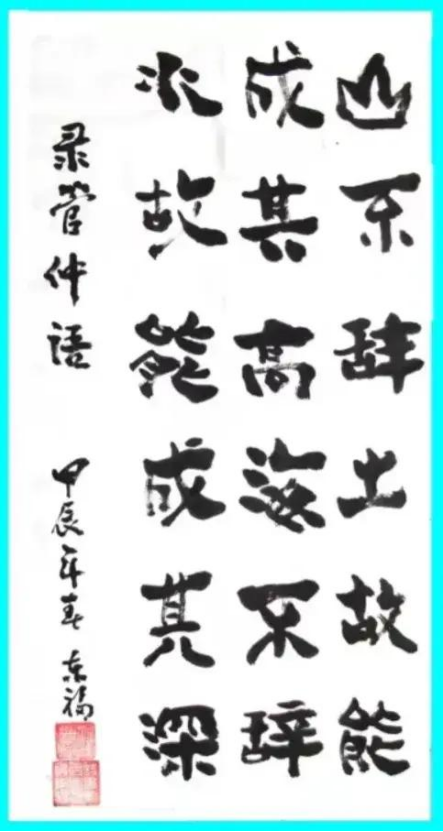 山不辞土故能
成其高海不辞
水故能成其深
录管仲语 甲辰年春 东福